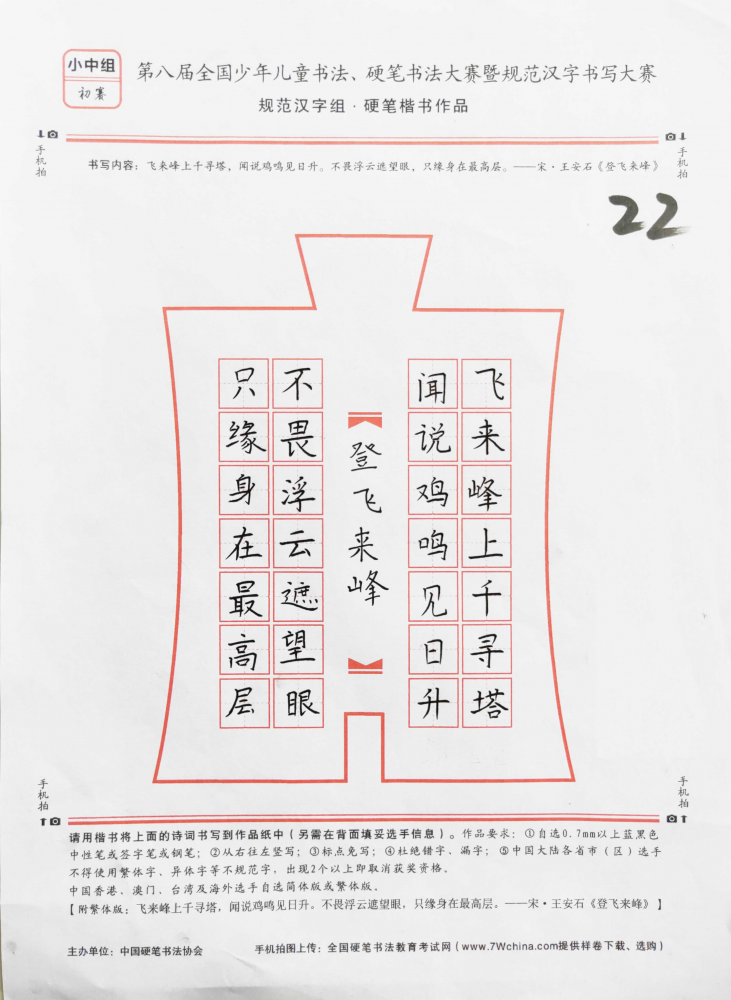 小中组
初赛
第八届全国少年儿童书法、硬笔书法大赛暨规范汉字书写大赛
规范汉字组·硬笔楷书作品
手机拍
手机拍
书写内容：飞来峰上千寻塔，闻说鸡鸣见日升。不畏浮云遮望眼，只缘身在最高层。——宋·王安石《登飞来峰》
22
飞来峰上千寻塔
闻说鸡鸣见日升
登飞来峰
不畏浮云遮望眼
只缘身在最高层
手机拍
手机拍
请用楷书将上面的诗词书写到作品纸中（另需在背面填妥选手信息）。作品要求：①自选0.7mm以上蓝黑色
中性笔或签字笔或钢笔；②从右往左竖写；③标点免写；④杜绝错字、漏字；⑤中国大陆各省市（区）选手
不得使用繁体字、异体字等不规范字，出现2个以上即取消获奖资格。
中国香港、澳门、台湾及海外选手自选简体版或繁体版。
【附繁体版：飞来峰上千寻塔，闻说鸡鸣见日升。不畏浮云遮望眼，只缘身在最高层。——宋·王安石《登飞来峰》】
主办单位：中国硬笔书法协会
手机拍图上传：全国硬笔书法教育考试网（www.7Wchina.com提供样卷下载、选购）